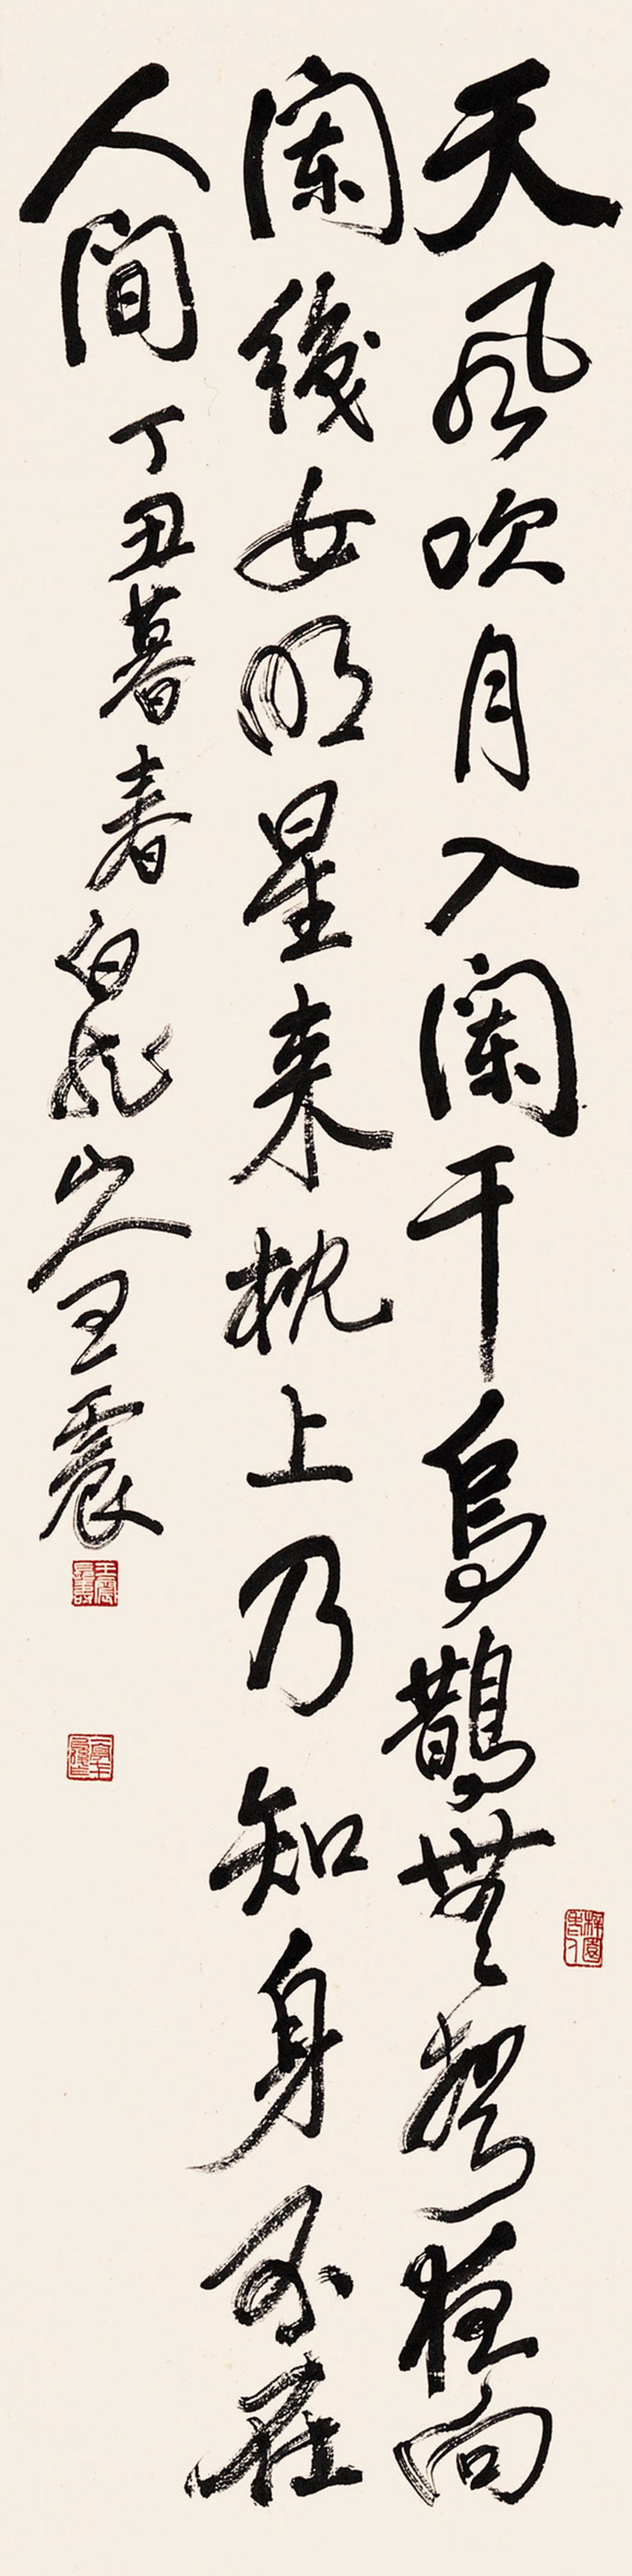 天風吹月入闌干烏鵲無聲夜向
闌織女明星来枕上乃知身不在
人間 丁丑暮春白龍山人王震